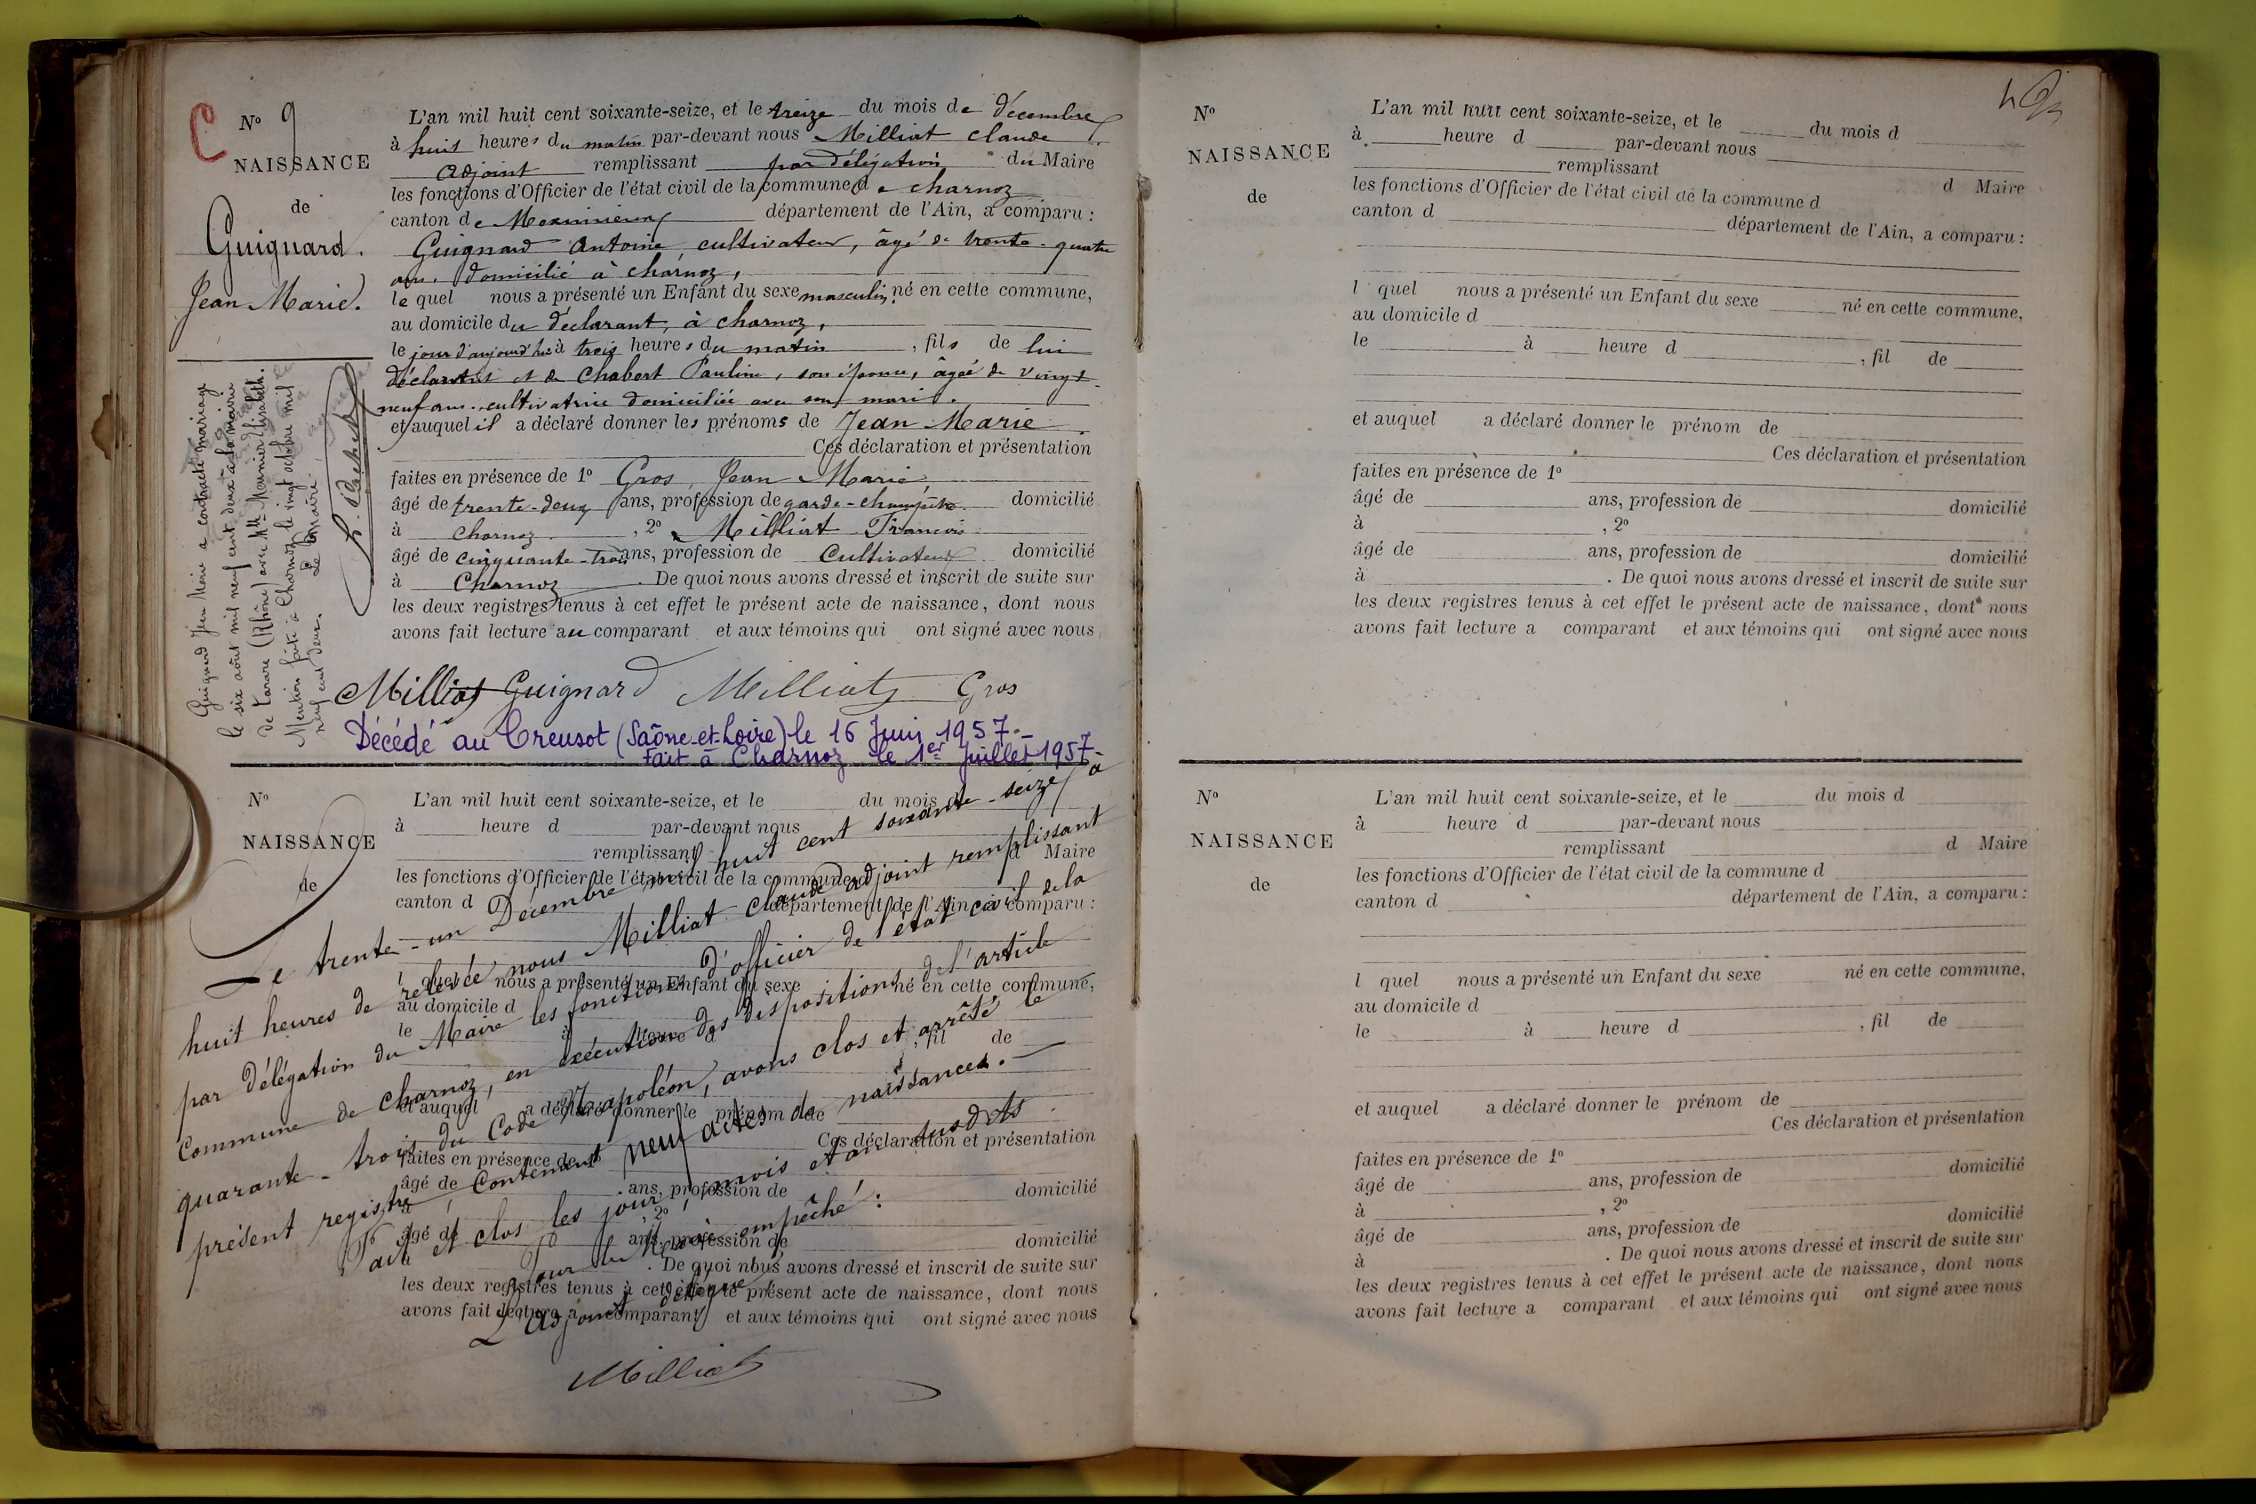 C
N° 9
NAISSANCE
de
Guignard.
Jean Marie.
Guignard Jean Marie a contracté mariage
le six août mil neuf cent deux à la mairie
de Tarare (Rhône) avec Mlle Élisabeth.
Mention faite à Charnoz le vingt octobre mil
neuf cent deux. Le Maire
L'an mil huit cent soixante-seize, et le treize du mois de décembre
à huit heures du matin par-devant nous Milliat Claude
adjoint remplissant par délégation du Maire
les fonctions d'Officier de l'état civil de la commune de Charnoz
canton de Meximieux département de l'Ain, a comparu :
Guignard Antoine cultivateur, âgé de trente-quatre
ans, domicilié à Charnoz,
lequel nous a présenté un Enfant du sexe masculin né en cette commune,
au domicile du déclarant, à Charnoz,
le jour d'aujourd'hui à trois heures du matin, fils de lui
déclarant et de Chabert Pauline, son épouse, âgée de vingt-
neuf ans, cultivatrice domiciliée avec son mari.
et auquel il a déclaré donner les prénoms de Jean Marie
Ces déclaration et présentation
faites en présence de 1° Gros, Jean Marie
âgé de trente-deux ans, profession de garde-champêtre domicilié
à Charnoz, 2° Milliat François
âgé de cinquante-trois ans, profession de Cultivateur domicilié
à Charnoz. De quoi nous avons dressé et inscrit de suite sur
les deux registres tenus à cet effet le présent acte de naissance, dont nous
avons fait lecture au comparant et aux témoins qui ont signé avec nous
Milliat Guignard Milliat Gros
Décédé au Creusot (Saône-et-Loire) le 16 Juin 1957.-
Fait à Charnoz le 1er Juillet 1957
N°
NAISSANCE
de
L'an mil huit cent soixante-seize, et le du mois d
à heure d par-devant nous
remplissant d Maire
les fonctions d'Officier de l'état civil de la commune d
canton d département de l'Ain, a comparu :
l quel nous a présenté un Enfant du sexe né en cette commune,
au domicile d
le à heure d , fil de
et auquel a déclaré donner le prénom de
Ces déclaration et présentation
faites en présence de 1°
âgé de ans, profession de domicilié
à , 2°
âgé de ans, profession de domicilié
à . De quoi nous avons dressé et inscrit de suite sur
les deux registres tenus à cet effet le présent acte de naissance, dont nous
avons fait lecture a comparant et aux témoins qui ont signé avec nous
Le trente-un Décembre mil huit cent soixante-seize, à
huit heures de relevée nous Milliat Claude adjoint remplissant
par délégation du Maire les fonctions d'officier de l'état civil de la
Commune de Charnoz, en exécution des dispositions de l'article
quarante-trois du Code Napoléon, avons clos et arrêté le
présent registre contenant neuf actes de naissances.
Fait et clos les jour, mois et an susdits.
Pour le Maire empêché :
L'adjoint délégué,
Milliat
N°
NAISSANCE
de
L'an mil huit cent soixante-seize, et le du mois d
à heure d par-devant nous
remplissant d Maire
les fonctions d'Officier de l'état civil de la commune d
canton d département de l'Ain, a comparu :
l quel nous a présenté un Enfant du sexe né en cette commune,
au domicile d
le à heure d , fil de
et auquel a déclaré donner le prénom de
Ces déclaration et présentation
faites en présence de 1°
âgé de ans, profession de domicilié
à , 2°
âgé de ans, profession de domicilié
à . De quoi nous avons dressé et inscrit de suite sur
les deux registres tenus à cet effet le présent acte de naissance, dont nous
avons fait lecture a comparant et aux témoins qui ont signé avec nous
N°
NAISSANCE
de
L'an mil huit cent soixante-seize, et le du mois d
à heure d par-devant nous
remplissant d Maire
les fonctions d'Officier de l'état civil de la commune d
canton d département de l'Ain, a comparu :
l quel nous a présenté un Enfant du sexe né en cette commune,
au domicile d
le à heure d , fil de
et auquel a déclaré donner le prénom de
Ces déclaration et présentation
faites en présence de 1°
âgé de ans, profession de domicilié
à , 2°
âgé de ans, profession de domicilié
à . De quoi nous avons dressé et inscrit de suite sur
les deux registres tenus à cet effet le présent acte de naissance, dont nous
avons fait lecture a comparant et aux témoins qui ont signé avec nous